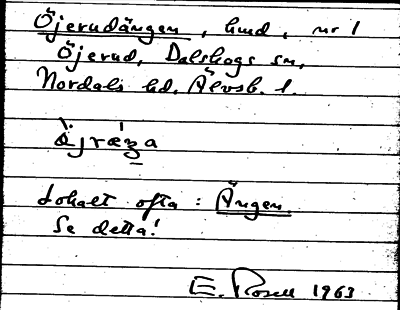 Öjerudängen, hmd, nr 1
Öjerud, Dalskogs sn,
Nordals hd, Älvsb. l.
Lokalt ofta: Ängen.
Se detta!
E. Rosell 1963